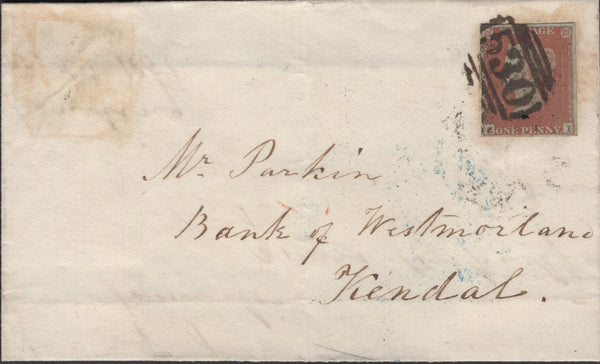 AGE
530
ONE PENNY
Mr Parkin
Bank of Westmorland
Kendal.